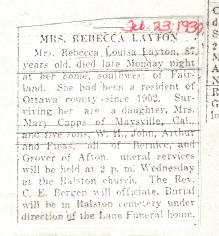 Feb. 23, 1939
MRS. REBECCA LAYTON
Mrs. Rebecca Louisa Layton, 87,
years old, died late Monday night
at her home, southwest of Fair-
land. She had been a resident of
Ottawa county since 1902. Sur-
viving her are a daughter, Mrs.
Mary Capps of Maysville, Cal.,
and five sons, W. H., John, Arthur
and Finas, all of Bernice, and
Grover of Afton. uneral services
will be held at 2 p. m. Wednesday
at the Ralston church. The Rev.
C. E. Bergen will officiate. Burial
will be in Ralston cemetery under
direction of the Lane Funeral home.